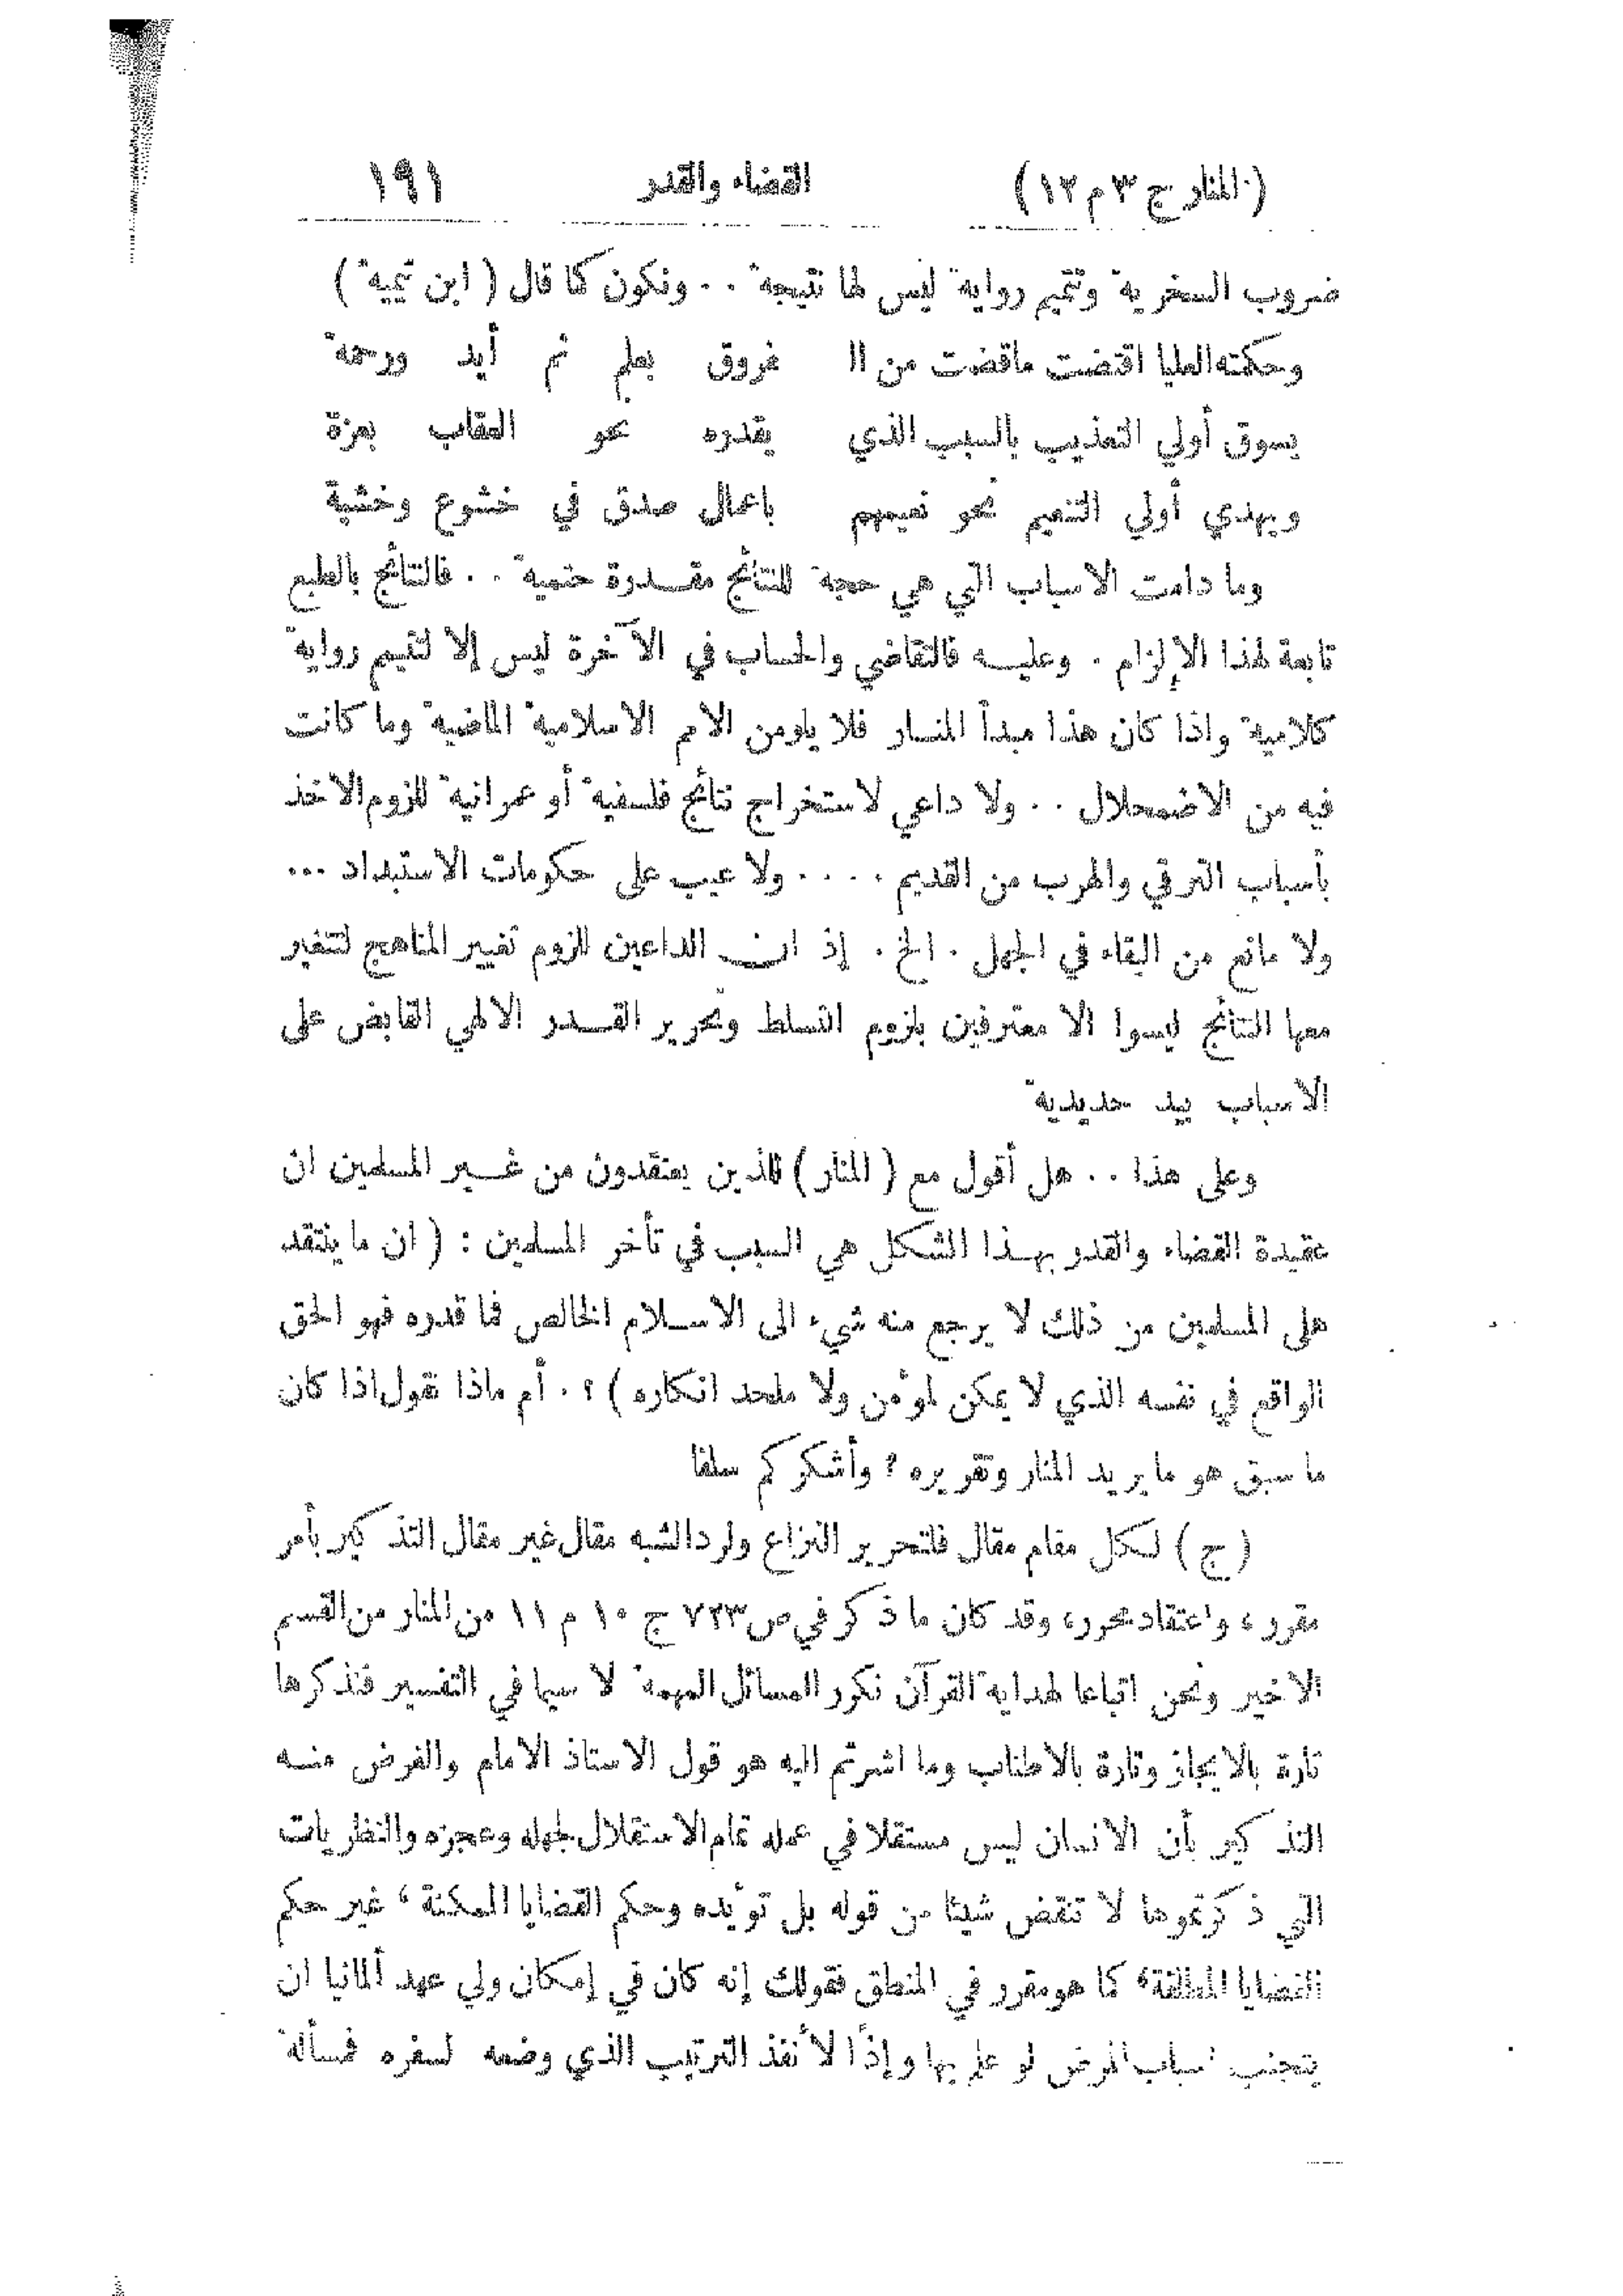 (المنار ج ٣ م ١٢) القضاء والقدر ١٩١
ضروب السخرية وتتميم رواية ليس لها نتيجة . . ونكون كما قال ( ابن تيمية )
وحكمته العليا اقتضت ماقضت من ال فروق بعلم ثم أيد ورحمة
يسوق أولي التعذيب بالسبب الذي يقدره نحو العقاب بعزة
ويهدي أولي التنعيم نحو نعيمهم باعمال صدق في خشوع وخشية
وما دامت الاسباب التي هي حجة للنتائج مقدرة حتمية . . فالنتائج بالطبع
تابعة لهذا الإلزام . وعليه فالتقاضي والحساب في الآخرة ليس إلا لتتيم رواية
كلامية واذا كان هذا مبدأ المنار فلا يلومن الامم الاسلامية الماضية وما كانت
فيه من الاضمحلال . . ولا داعي لاستخراج نتائج فلسفية أو عمرانية للزوم الاخذ
بأسباب الترقي والهرب من القديم . . . . ولا عيب على حكومات الاستبداد ...
ولا مانع من البقاء في الجهل . الخ . إذ ان الداعين للزوم تغيير المناهج لتتغير
معها النتائج ليسوا الا معترفين بلزوم التسلط وتحرير القدر الالهي القابض على
الاسباب بيد حديدية
وعلى هذا . . هل أقول مع ( المنار ) للذين يعتقدون من غير المسلمين ان
عقيدة القضاء والقدر بهذا الشكل هي السبب في تأخر المسلمين : ( ان ما ينتقد
على المسلمين من ذلك لا يرجع منه شيء الى الاسلام الخالص فما قدره فهو الحق
الواقع في نفسه الذي لا يمكن لمؤمن ولا ملحد انكاره ) ؟ . أم ماذا نقول اذا كان
ما سبق هو ما يريد المنار وتقريره ؟ وأشكركم سلفا
( ج ) لكل مقام مقال فلتحرير النزاع ولرد الشبه مقال غير مقال التذكير بأمر
مقرر ، واعتقاد محرر ، وقد كان ما ذكر في ص ٧٢٣ ج ١٠ م ١١ من المنار من القسم
الاخير ونحن اتباعا لهداية القرآن نكرر المسائل المهمة لا سيما في التفسير فنذكرها
تارة بالايجاز وتارة بالاطناب وما اشرتم اليه هو قول الاستاذ الامام والغرض منه
التذكير بأن الانسان ليس مستقلا في عمله تمام الاستقلال لجهله وعجزه والنظريات
التي ذكرتموها لا تنقض شيئا من قوله بل تؤيده وحكم القضايا الممكنة ، غير حكم
القضايا المطلقة ، كما هو مقرر في المنطق فقولك إنه كان في إمكان ولي عهد ألمانيا ان
يتجنب اسباب المرض لو علم بها وإذًا لأنفذ الترتيب الذي وضعه لسفره فمسألة